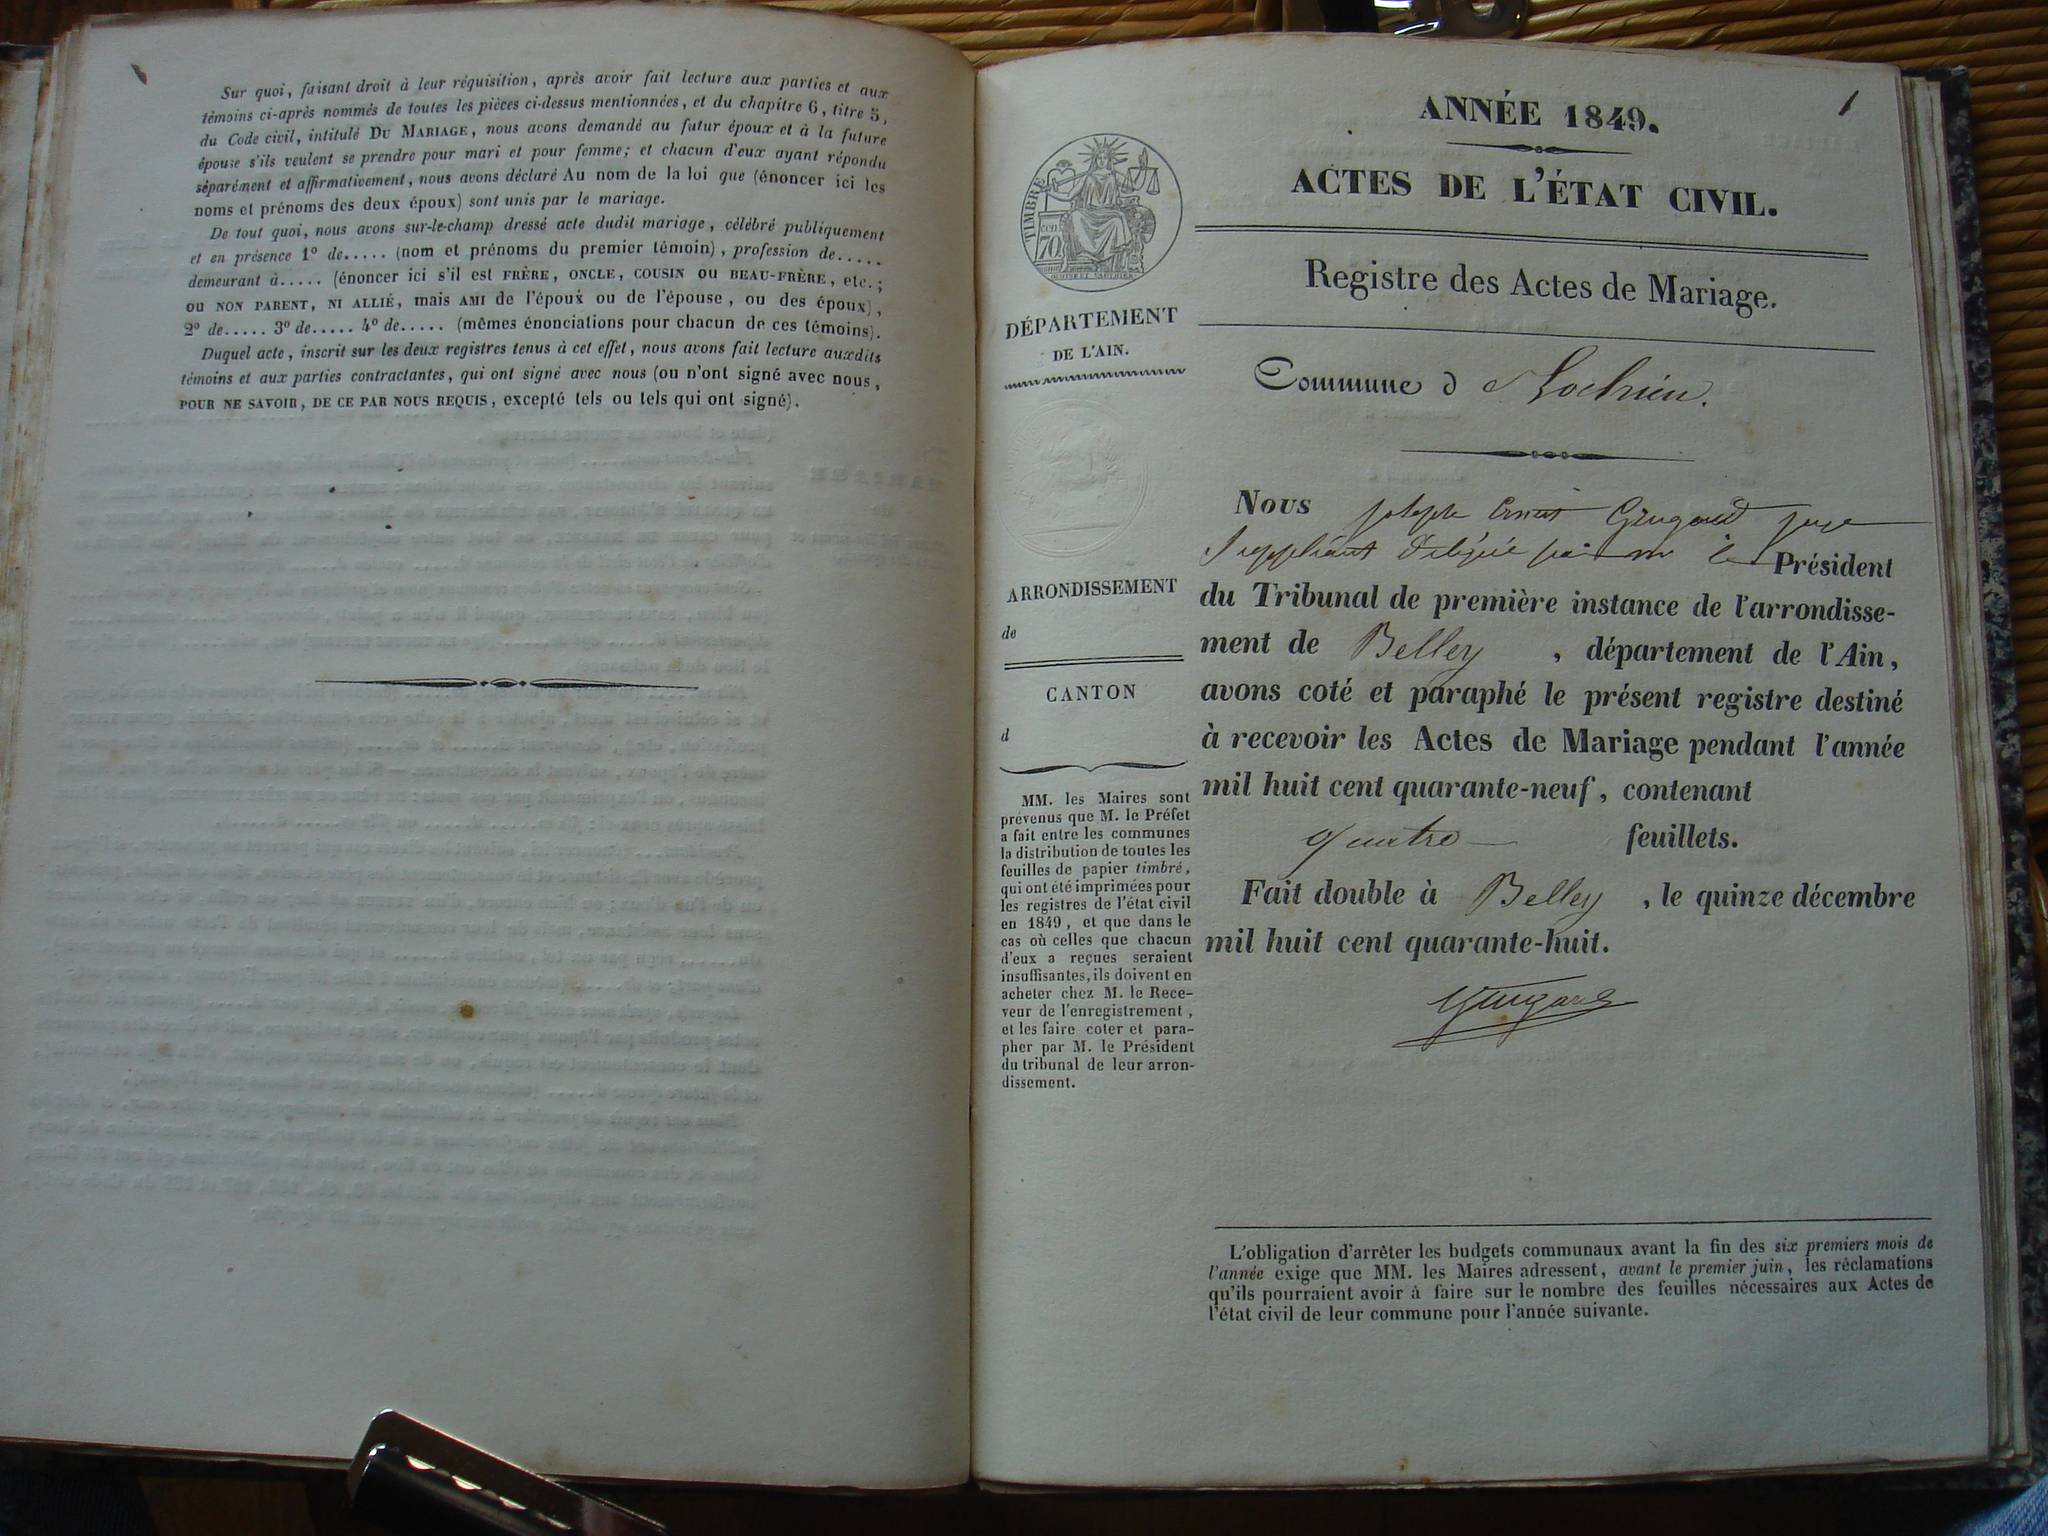 Sur quoi, faisant droit à leur réquisition, après avoir fait lecture aux parties et aux
témoins ci-après nommés de toutes les pièces ci-dessus mentionnées, et du chapitre 6, titre 5,
du Code civil, intitulé DU MARIAGE, nous avons demandé au futur époux et à la future
épouse s'ils veulent se prendre pour mari et pour femme; et chacun d'eux ayant répondu
séparément et affirmativement, nous avons déclaré Au nom de la loi que (énoncer ici les
noms et prénoms des deux époux) sont unis par le mariage.
De tout quoi, nous avons sur-le-champ dressé acte dudit mariage, célébré publiquement
et en présence 1° de..... (nom et prénoms du premier témoin), profession de.....
demeurant à..... (énoncer ici s'il est FRÈRE, ONCLE, COUSIN OU BEAU-FRÈRE, etc.;
OU NON PARENT, NI ALLIÉ, mais AMI de l'époux ou de l'épouse, ou des époux),
2° de..... 3° de..... 4° de..... (mêmes énonciations pour chacun de ces témoins).
Duquel acte, inscrit sur les deux registres tenus à cet effet, nous avons fait lecture auxdits
témoins et aux parties contractantes, qui ont signé avec nous (ou n'ont signé avec nous,
POUR NE SAVOIR, DE CE PAR NOUS REQUIS, excepté tels ou tels qui ont signé).
1
ANNÉE 1849.
ACTES DE L'ÉTAT CIVIL.
Registre des Actes de Mariage.
Commune de Lochieu.
TIMBRE
cen
70
DÉPARTEMENT
DE L'AIN.
ARRONDISSEMENT
de
CANTON
d
MM. les Maires sont
prévenus que M. le Préfet
a fait entre les communes
la distribution de toutes les
feuilles de papier timbré,
qui ont été imprimées pour
les registres de l'état civil
en 1849, et que dans le
cas où celles que chacun
d'eux a reçues seraient
insuffisantes, ils doivent en
acheter chez M. le Rece-
veur de l'enregistrement,
et les faire coter et para-
pher par M. le Président
du tribunal de leur arron-
dissement.
Nous joseph juge
Suppléant délégué par m le Président
du Tribunal de première instance de l'arrondisse-
ment de Belley, département de l'Ain,
avons coté et paraphé le présent registre destiné
à recevoir les Actes de Mariage pendant l'année
mil huit cent quarante-neuf, contenant
quatre feuillets.
Fait double à Belley, le quinze décembre
mil huit cent quarante-huit.
L'obligation d'arrêter les budgets communaux avant la fin des six premiers mois de
l'année exige que MM. les Maires adressent, avant le premier juin, les réclamations
qu'ils pourraient avoir à faire sur le nombre des feuilles nécessaires aux Actes de
l'état civil de leur commune pour l'année suivante.